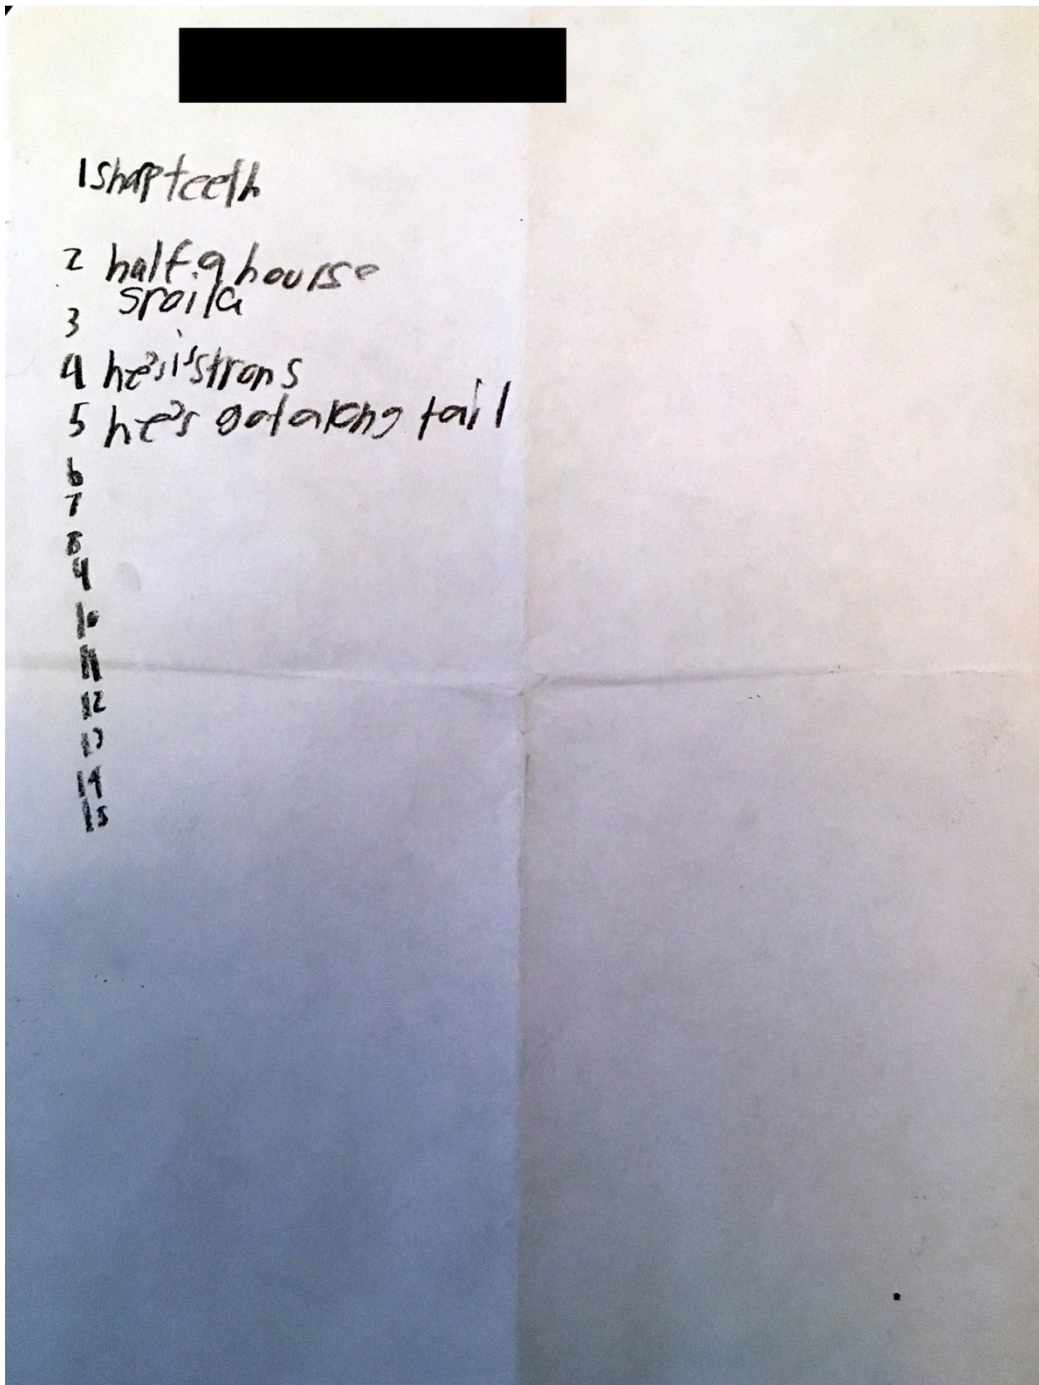 1 shap teeth
2 half.a hourse
sroila
3
4 he's is strons
5 he's got a long tail
6
7
8
9
10
11
12
13
14
15